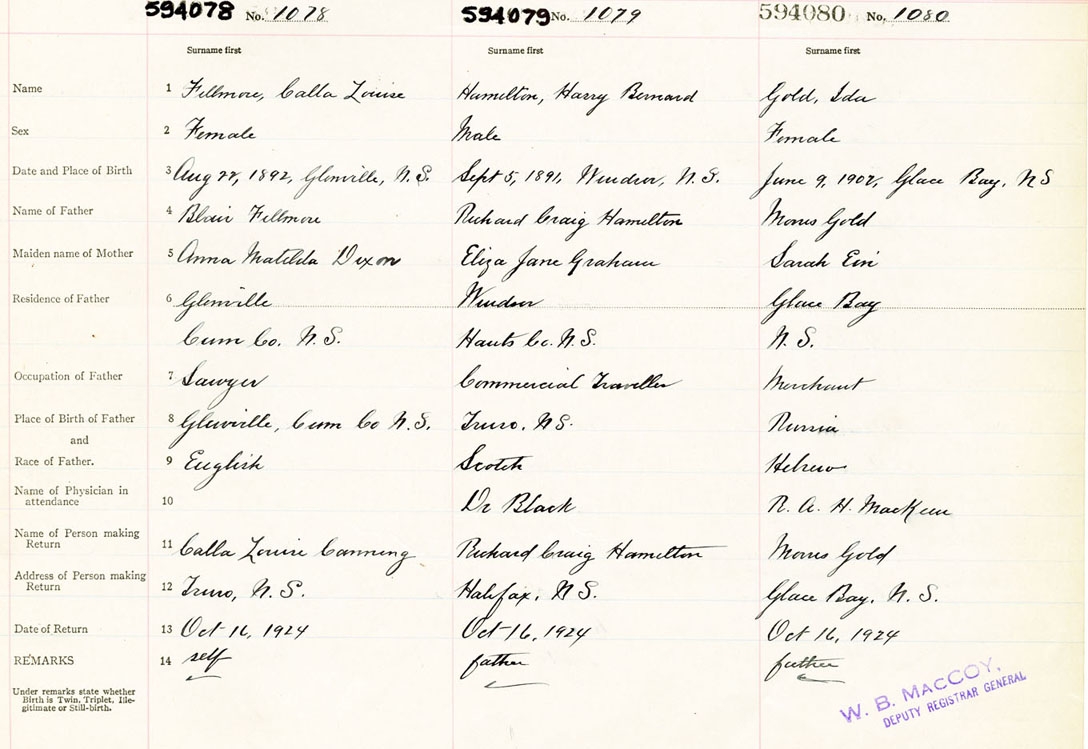 594078 No. 1078 594079 No. 1079 594080 No. 1080
Surname first Surname first Surname first
Name 1 Fillmore, Calla Louise Hamilton, Harry Bernard Gold, Ida
Sex 2 Female Male Female
Date and Place of Birth 3 Aug 22, 1892, Glenville, N.S. Sept 5, 1891, Windsor, N.S. June 9, 1902, Glace Bay, NS
Name of Father 4 Blair Fillmore Richard Craig Hamilton Morris Gold
Maiden name of Mother 5 Anna Matilda Dixon Eliza Jane Graham Sarah
Residence of Father 6 Glenville Windsor Glace Bay
Cum Co. N.S. Hants Co. N.S. N.S.
Occupation of Father 7 Sawyer Commercial Traveller Merchant
Place of Birth of Father 8 Glenville, Cum Co N.S. Truro, NS. Russia
and
Race of Father. 9 English Scotch Hebrew
Name of Physician in
attendance 10 Dr Black R. A. H. MacKeen
Name of Person making
Return 11 Calla Louise Canning Richard Craig Hamilton Morris Gold
Address of Person making
Return 12 Truro, N.S. Halifax, NS. Glace Bay, N.S.
Date of Return 13 Oct 16, 1924 Oct 16, 1924 Oct 16, 1924
REMARKS 14 self father father
Under remarks state whether
Birth is Twin, Triplet, Ille-
gitimate or Still-birth.
W. B. MACCOY,
DEPUTY REGISTRAR GENERAL